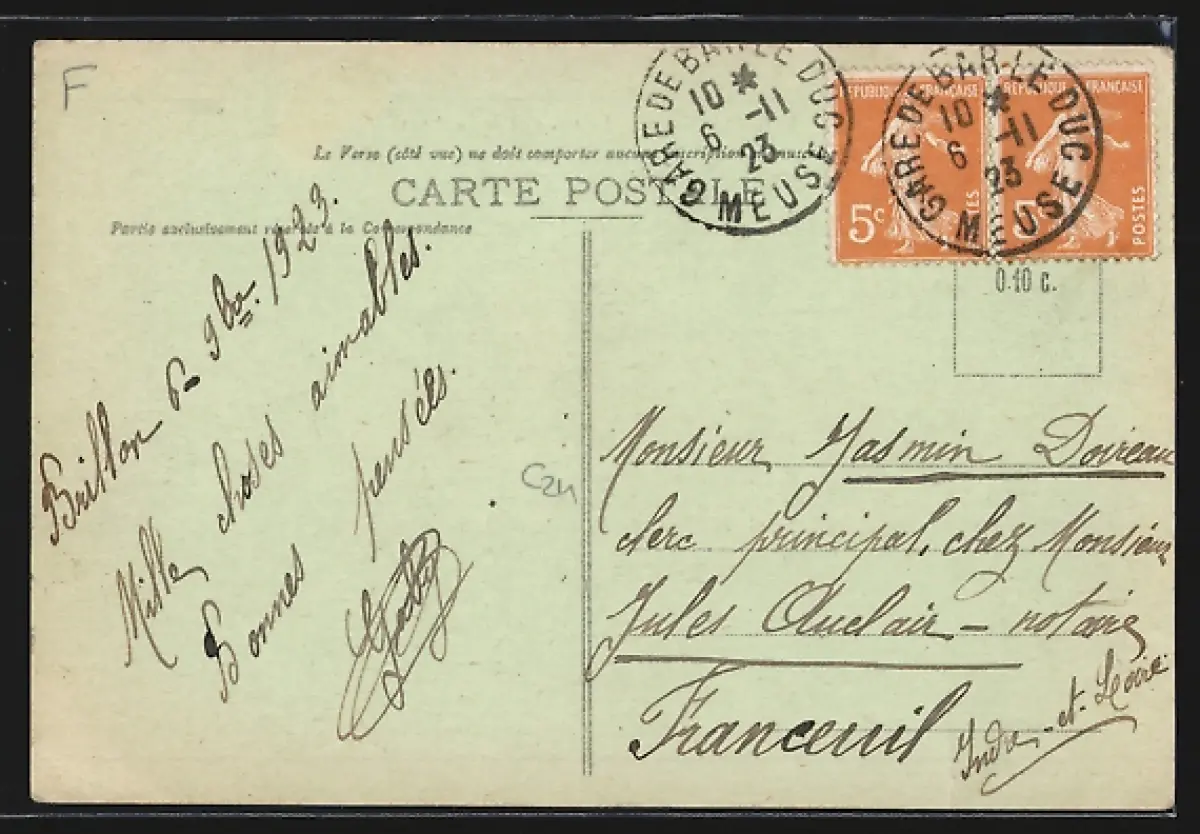 F
Le Verso (côté vue) ne doit comporter aucune inscription manuscrite
CARTE POSTALE
Partie exclusivement réservée à la Correspondance
GARE DE BAR-LE DUC
10 *
6 -11
23
MEUSE
GARE DE BAR-LE DUC
10 *
6 -11
23
MEUSE
REPUBLIQUE FRANÇAISE
5c
REPUBLIQUE FRANÇAISE
5c
POSTES
0.10 c.
Brillon 6 9bre 1923.
Mille choses aimables.
Bonnes pensées.
Monsieur Jasmin Doireau
clerc principal, chez Monsieur
Jules Auclair – notaire
Franceuil
Indre-et-Loire